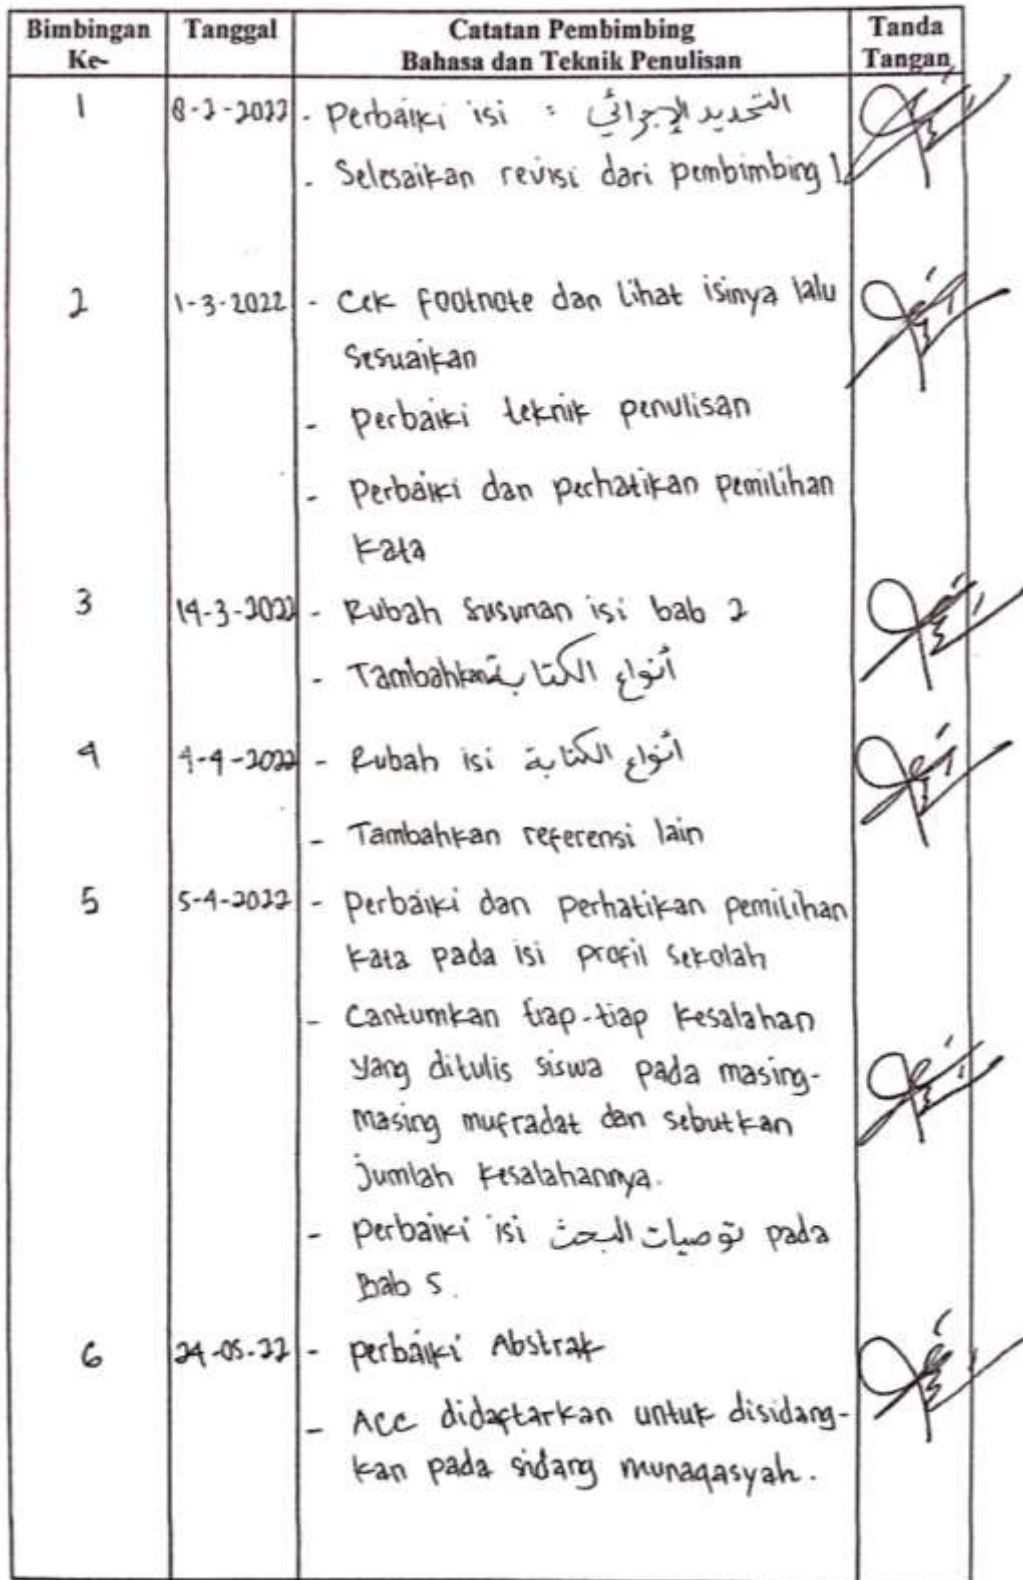 Bimbingan Ke- Tanggal Catatan Pembimbing Bahasa dan Teknik Penulisan Tanda Tangan
1 8-2-2022 - Perbaiki isi : التحديد الإجرائي
- Selesaikan revisi dari pembimbing 1
2 1-3-2022 - Cek Footnote dan Lihat isinya lalu
Sesuaikan
- Perbaiki teknik penulisan
- Perbaiki dan perhatikan pemilihan
Kata
3 14-3-2022 - Rubah susunan isi bab 2
- Tambahkan أنواع الكتابة
4 4-4-2022 - Rubah isi أنواع الكتابة
- Tambahkan referensi lain
5 5-4-2022 - Perbaiki dan perhatikan pemilihan
kata pada isi profil sekolah
- Cantumkan tiap-tiap kesalahan
yang ditulis siswa pada masing-
masing mufradat dan sebutkan
jumlah kesalahannya.
- Perbaiki isi توصيات البحث pada
Bab 5.
6 24-05-22 - perbaiki Abstrak
- Acc didaftarkan untuk disidang-
kan pada sidang munaqasyah.